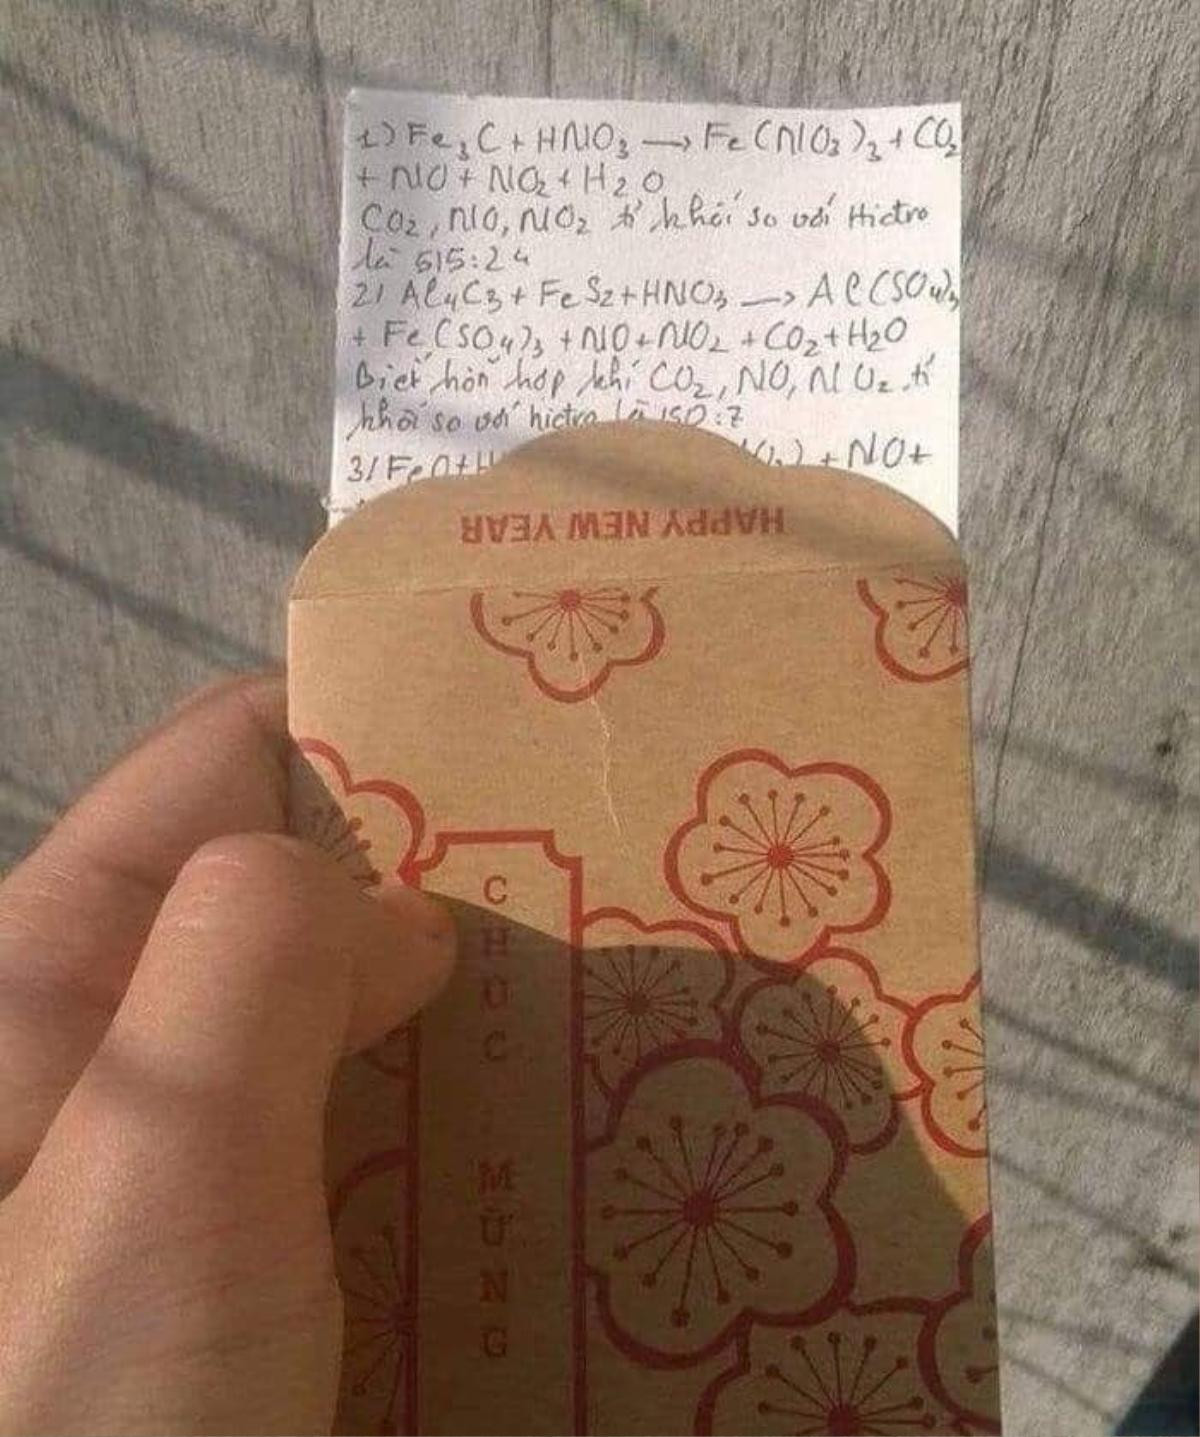 1) Fe₃C + HNO₃ → Fe(NO₃)₃ + CO₂
+ NO + NO₂ + H₂O
CO₂, NO, NO₂ tỉ khối so với Hidro
là 515:24
2/ Al₄C₃ + FeS₂ + HNO₃ → Al(SO₄)₃
+ Fe(SO₄)₃ + NO + NO₂ + CO₂ + H₂O
Biết hỗn hợp khí CO₂, NO, NO₂ tỉ
khối so với hidro là 150:7
3/ FeO + NO +
HAPPY NEW YEAR
CHÚC MỪNG